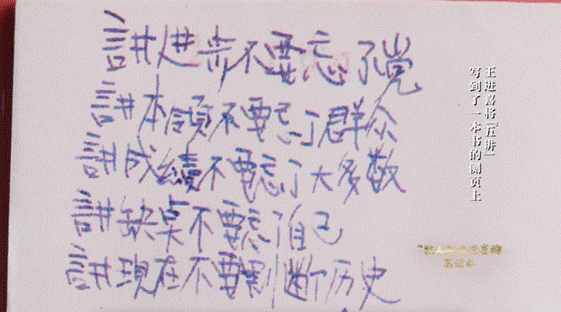 讲进步不要忘了党
讲本领不要忘了群众
讲成绩不要忘了大多数
讲缺点不要忘了自己
讲现在不要割断历史
王进喜将“五讲”
写到了一本书的扉页上